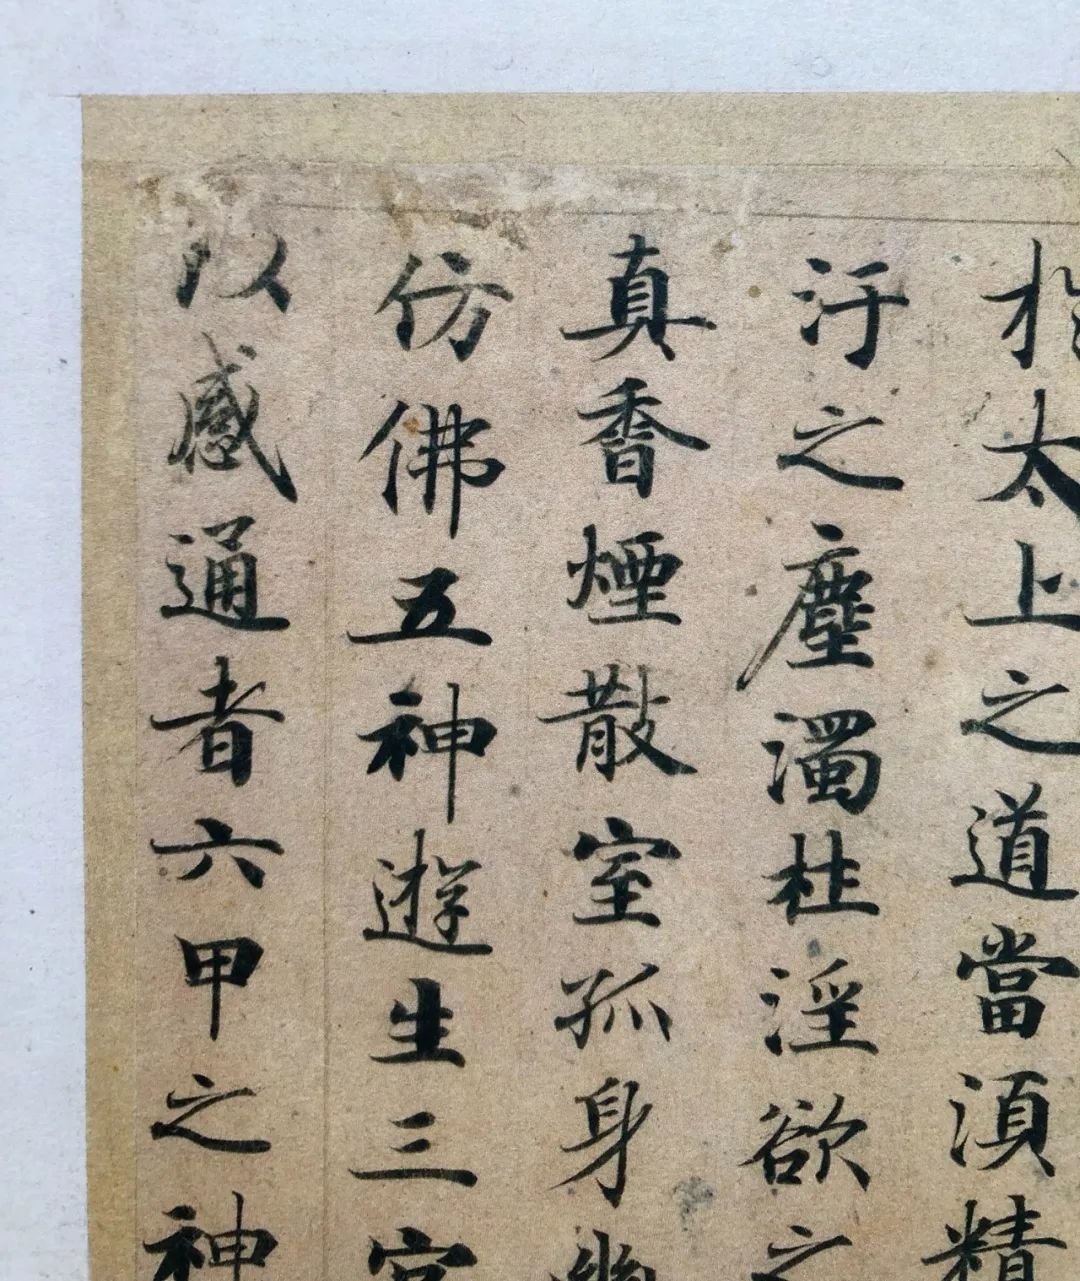 於太上之道當須精
汙之塵濁杜淫欲之
真香煙散室孤身幽
仿佛五神遊生三宮
以感通者六甲之神